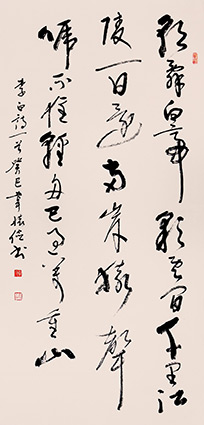 朝辞白帝彩云间千里江
陵一日还两岸猿声
啼不住轻舟已过万重山
李白诗一首癸巳 书